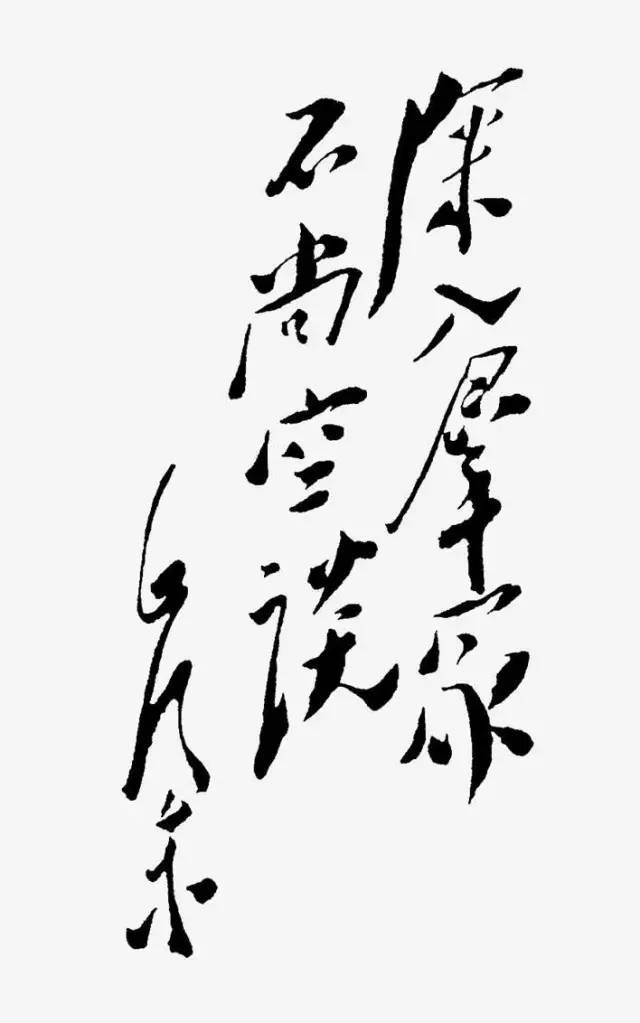 深入群众
不尚空谈
毛泽东